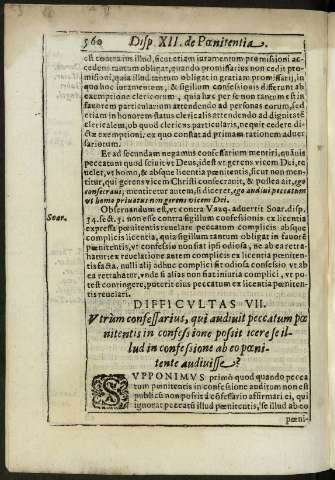 560 Disp. XII. de Pœnitentia.
est contra ius illud, sicut etiam iuramentum promissioni ac-
cedens tantum obligat, quando promissarius non cedit pro-
missioni, quia illud tantum obligat in gratiam promissarij, in
quo hoc iuramentum, & sigillum confessionis differunt ab
exemptione clericorum, quia hæc per se non tantum est in
fauorem particularium attendendo ad personas eorum, sed
etiam in honorem status clericalis attendendo ad dignitatē
clericalem, ob quod clericus particularis, nequit cedere di-
ctæ exemptioni; ex quo constat ad primam rationem aduer-
sariorum.
Et ad secundam negamus confessarium mentiri, quāuis
peccatum quod sciuit vt Deus, idest vt gerens vicem Dei, re
uelet, vt homo, & absque licentia pœnitentis, sicut non men-
titur, qui gerens vicem Christi consecrauit, & postea ait, ego
consecraui; mentiretur autem, si diceret, ego audiui peccatum
vt homo priuatus non gerens vicem Dei.
Soar.
Obseruandum est, vt contra Vazq. aduertit Soar. disp.
34. sect. 5. non esse contra sigillum confessionis ex licentia
expressa pœnitentis reuelare peccatum complicis absque
complicis licentia, quia sigillum tantum obligat in fauorē
pœnitentis, vt confessio non fiat ipsi odiosa, ne ab ea retra-
hatur; ex reuelatione autem complicis ex licentia pœniten-
tis facta. nulli alij adhuc complici fit odiosa confessio vt ab
ea retrahatur, vnde si alias non fiat iniuria complici, vt po-
test contingere, poterit eius peccatum ex licentia pœniten-
tis reuelari.
DIFFICVLTAS VII.
Vtrum confessarius, qui audiuit peccatum pœ
nitentis in confessione possit icere se il-
lud in confessione ab eo pœni-
tente audiuisse?
SVPPONIMVS primò quod quando pecca
tum pœnitentis in confessione auditum non est
publicū non posse à cōfessario affirmari ei, qui
ignorat peccatū illud pœnitentis, se illud ab eo
pœni-